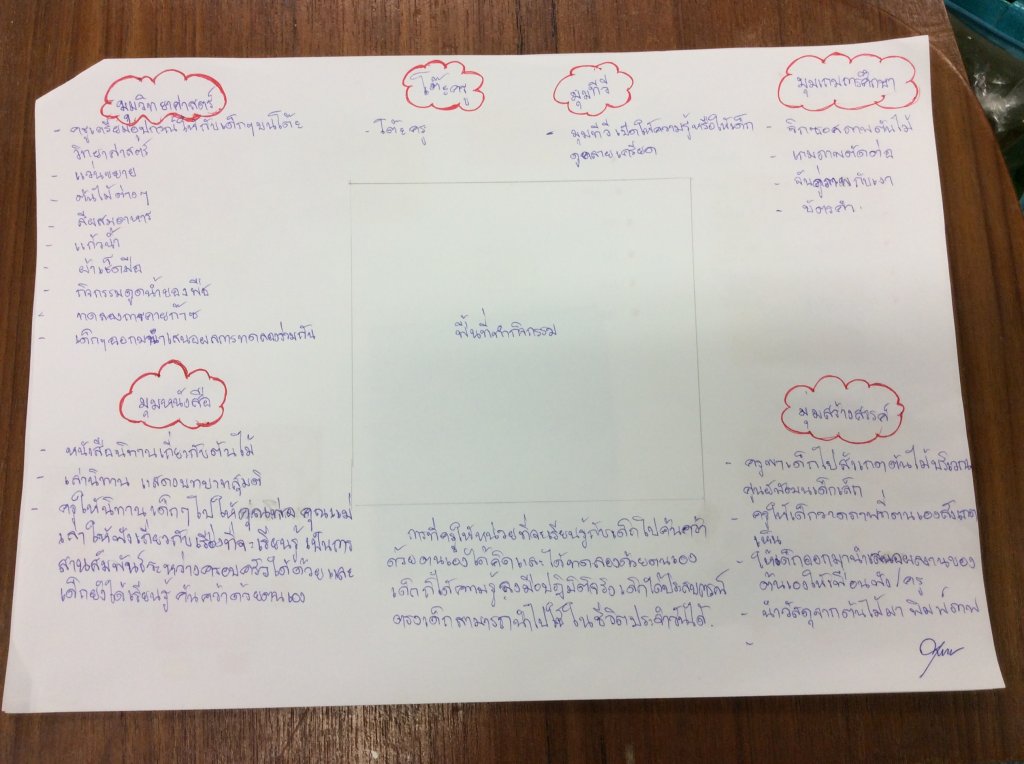 มุมวิทยาศาสตร์
- ครูเตรียมอุปกรณ์ให้กับเด็กๆบนโต๊ะ
วิทยาศาสตร์
- แว่นขยาย
- ต้นไม้ต่างๆ
- สีผสมอาหาร
- แก้วน้ำ
- ผ้าเช็ดมือ
- กิจกรรมดูดน้ำของพืช
- ทดลองการคายก๊าซ
- เด็กๆออกมานำเสนอผลการทดลองร่วมกัน
โต๊ะครู
- โต๊ะครู
มุมทีวี
- มุมทีวี เปิดให้ความรู้หรือให้เด็ก
ดูคลายเครียด
มุมเกมการศึกษา
- จิกซอลภาพต้นไม้
- เกมภาพตัดต่อ
- จับคู่ภาพกับเงา
- บัตรคำ.
พื้นที่ทำกิจกรรม
มุมหนังสือ
- หนังสือนิทานเกี่ยวกับต้นไม้
- เล่านิทาน แสดงบทบาทสมมติ
- ครูให้นิทานเด็กๆไปให้คุณพ่อ คุณแม่
เล่าให้ฟังเกี่ยวกับเรื่องที่จะเรียนรู้ เป็นการ
สานสัมพันธ์ระหว่างครอบครัวได้ด้วย และ
เด็กยังได้เรียนรู้ ค้นคว้าด้วยตนเอง
การที่ครูให้หน่วยที่จะเรียนรู้กับเด็กไปค้นคว้า
ด้วยตนเองได้คิดและได้ทดลองด้วยตนเอง
เด็กก็ได้ความรู้ ลงมือปฏิบัติจริง เด็กได้ประสบการณ์
ตรงเด็กสามารถนำไปใช้ในชีวิตประจำวันได้.
มุมสร้างสรรค์
- ครูพาเด็กไปสังเกตต้นไม้บริเวณ
ศูนย์พัฒนาเด็กเล็ก
- ครูให้เด็กวาดภาพที่ตนเองสังเกต
เห็น
- ให้เด็กออกมานำเสนอผลงานของ
ตนเองให้เพื่อนฟัง / ครู
- นำวัสดุจากต้นไม้มา พิมพ์ภาพ
-